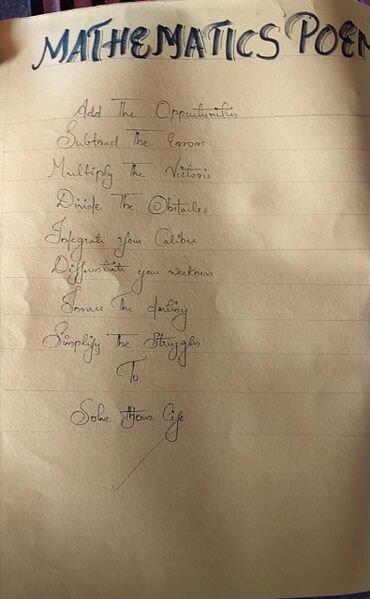 MATHEMATICS POEM
Add The Oppurtunities
Subtract The Errors
Multiply The Victoris
Divide The Obstacles
Integrate your Calibre
Differentiate your weekness
The
Simplify The Struggles
To
Solve Your Life